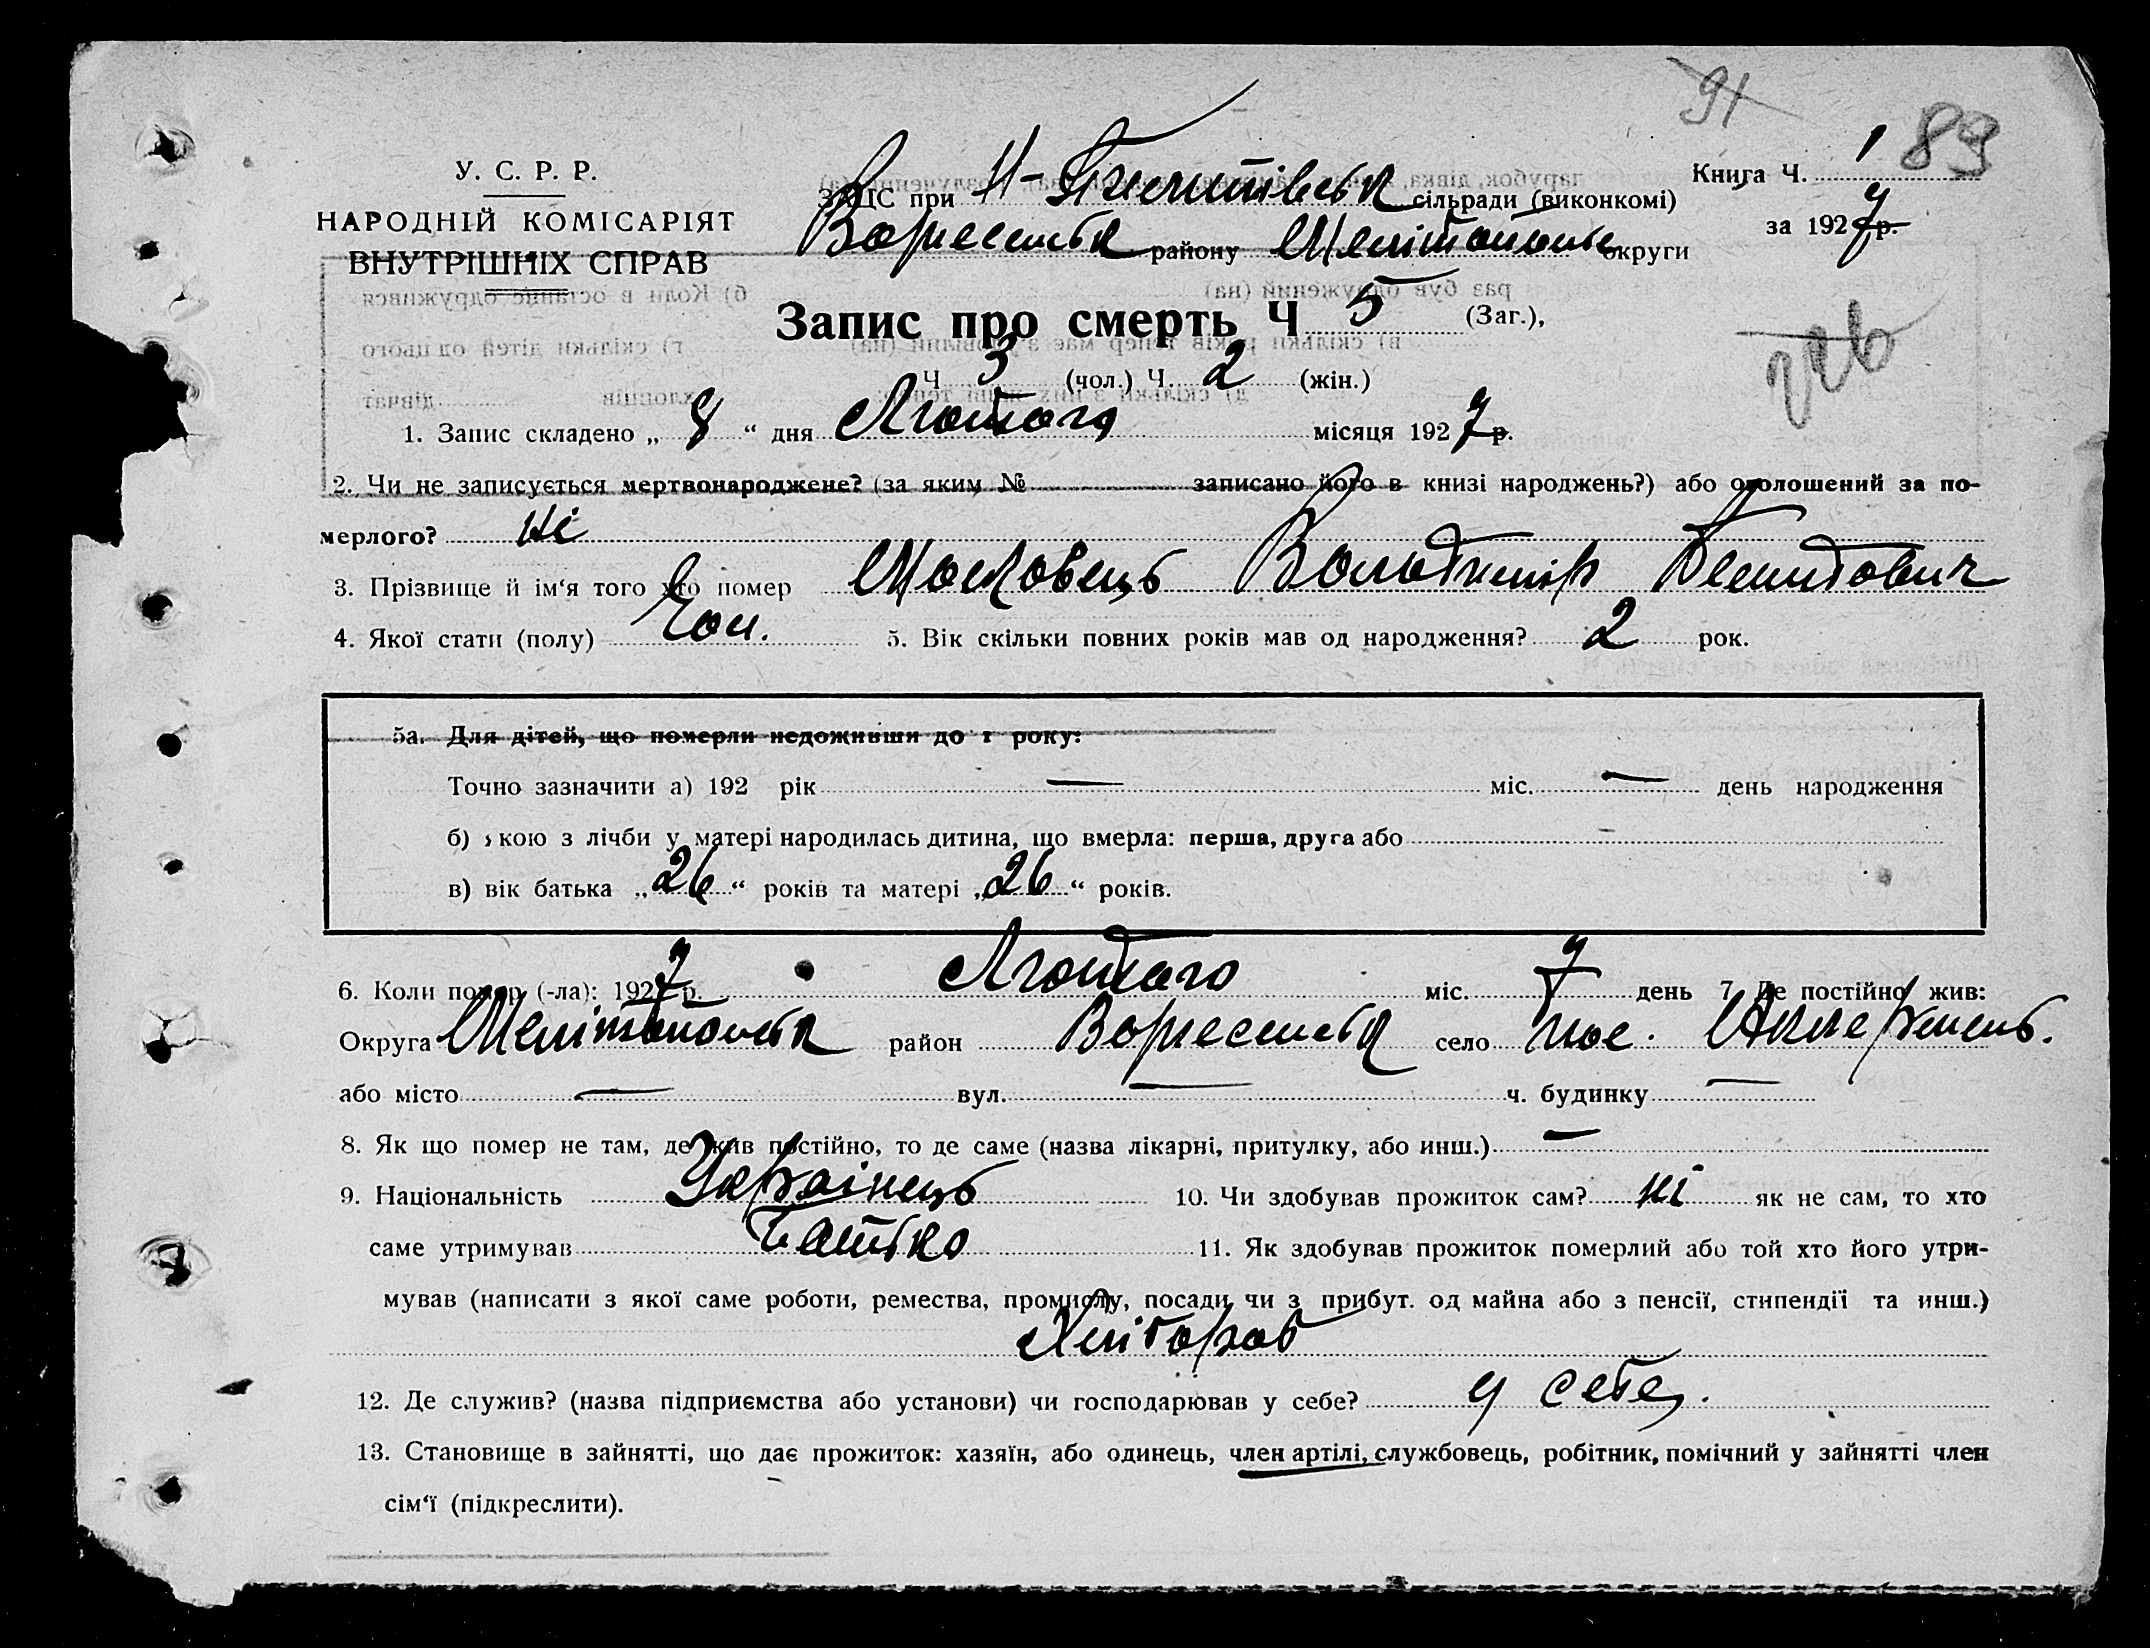 91
89
У. С. Р. Р.
НАРОДНІЙ КОМІСАРІЯТ
ВНУТРІШНІХ СПРАВ
Книга Ч. 1
за 1927 р.
ЗАЦС при сільради (виконкомі)
району округи
Запис про смерть Ч 5 (Заг.),
Ч 3 (чол.) Ч. 2 (жін.)
1. Запис складено „ 8 “ дня Лютого місяця 1927 р.
2. Чи не записується мертвонароджене? (за яким № записано його в книзі народжень?) або оголошений за по-
мерлого? ні
3. Прізвище й ім‘я того хто помер
4. Якої стати (полу) Чол. 5. Вік скільки повних років мав од народження? 2 рок.
5а. Для дітей, що померли недоживши до 1 року:
Точно зазначити а) 192 рік — міс. — день народження
б) якою з лічби у матері народилась дитина, що вмерла: перша, друга або –
в) вік батька „ 26 “ років та матері „ 26 “ років.
6. Коли помер (-ла): 1927 р. Лютого міс. 7 день 7. Де постійно жив:
Округа Мелітопольськ район село
або місто — вул. — ч. будинку —
8. Як що помер не там, де жив постійно, то де саме (назва лікарні, притулку, або инш.) —
9. Національність Українець 10. Чи здобував прожиток сам? ні як не сам, то хто
саме утримував батько 11. Як здобував прожиток померлий або той хто його утри-
мував (написати з якої саме роботи, ремества, промислу, посади чи з прибут. од майна або з пенсії, стипендії та инш.)
Хлібороб
12. Де служив? (назва підприємства або установи) чи господарював у себе? у себе.
13. Становище в зайнятті, що дає прожиток: хазяїн, або одинець, член артілі, службовець, робітник, помічний у зайнятті член
сім‘ї (підкреслити).